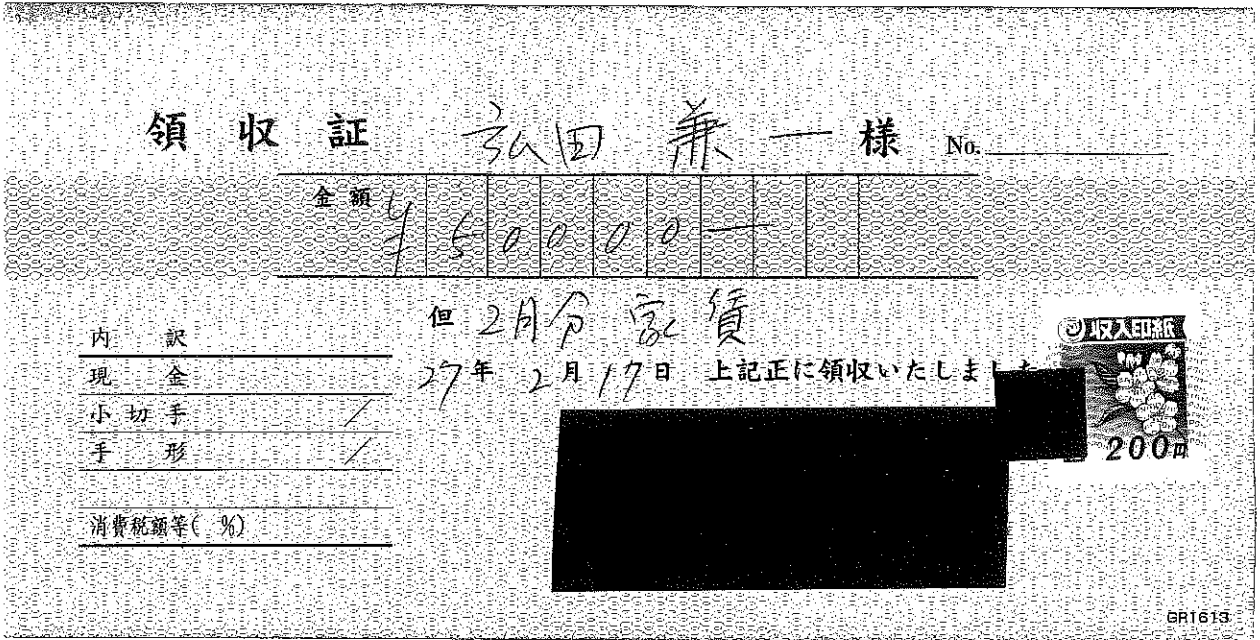 領収証 弘田 兼一 様 No.
金額 ¥50000―
但 2月分 家賃
27年 2月17日 上記正に領収いたしました
内訳
現金
小切手 /
手形 /
消費税額等( %)
収入印紙
200円
GR1613